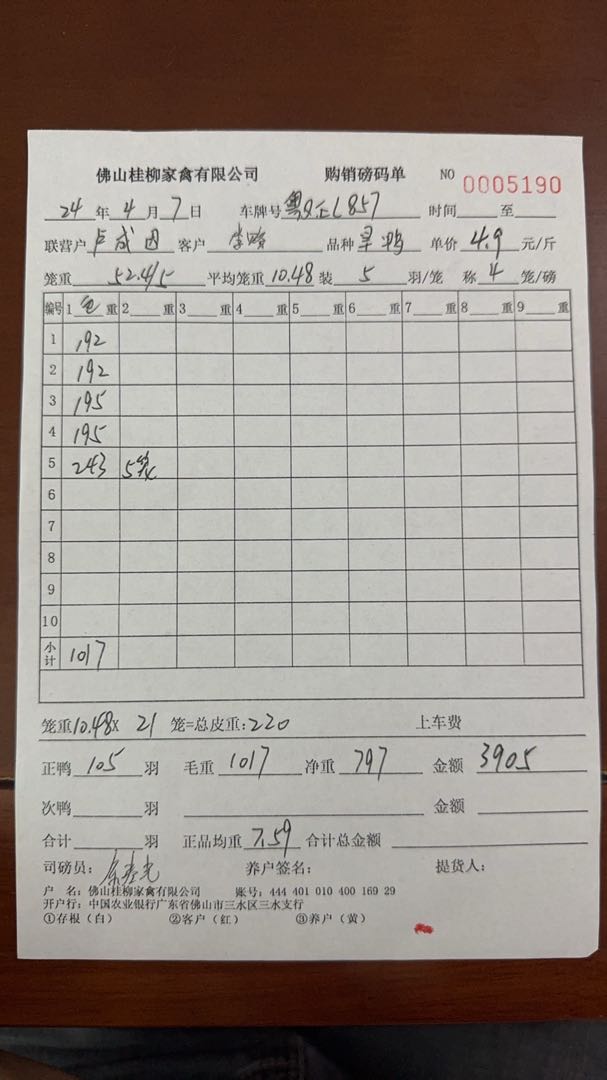 佛山桂柳家禽有限公司 购销磅码单 NO 0005190
24 年 4 月 7 日 车牌号 粤 857 时间 至
联营户 卢成 客户 品种 旱鸭 单价 4.9 元/斤
笼重 52.4/5 平均笼重 10.48 装 5 羽/笼 称 4 笼/磅
编号 1 毛 重 2 重 3 重 4 重 5 重 6 重 7 重 8 重 9 重
1 192
2 192
3 195
4 195
5 243 5笼
6
7
8
9
10
小计 1017
笼重10.48X 21 笼=总皮重:220 上车费
正鸭 105 羽 毛重 1017 净重 797 金额 3905
次鸭 羽 金额
合计 羽 正品均重 7.59 合计总金额
司磅员: 养户签名: 提货人:
户 名:佛山桂柳家禽有限公司 账号:444 401 010 400 169 29
开户行:中国农业银行广东省佛山市三水区三水支行
①存根(白) ②客户(红) ③养户(黄)